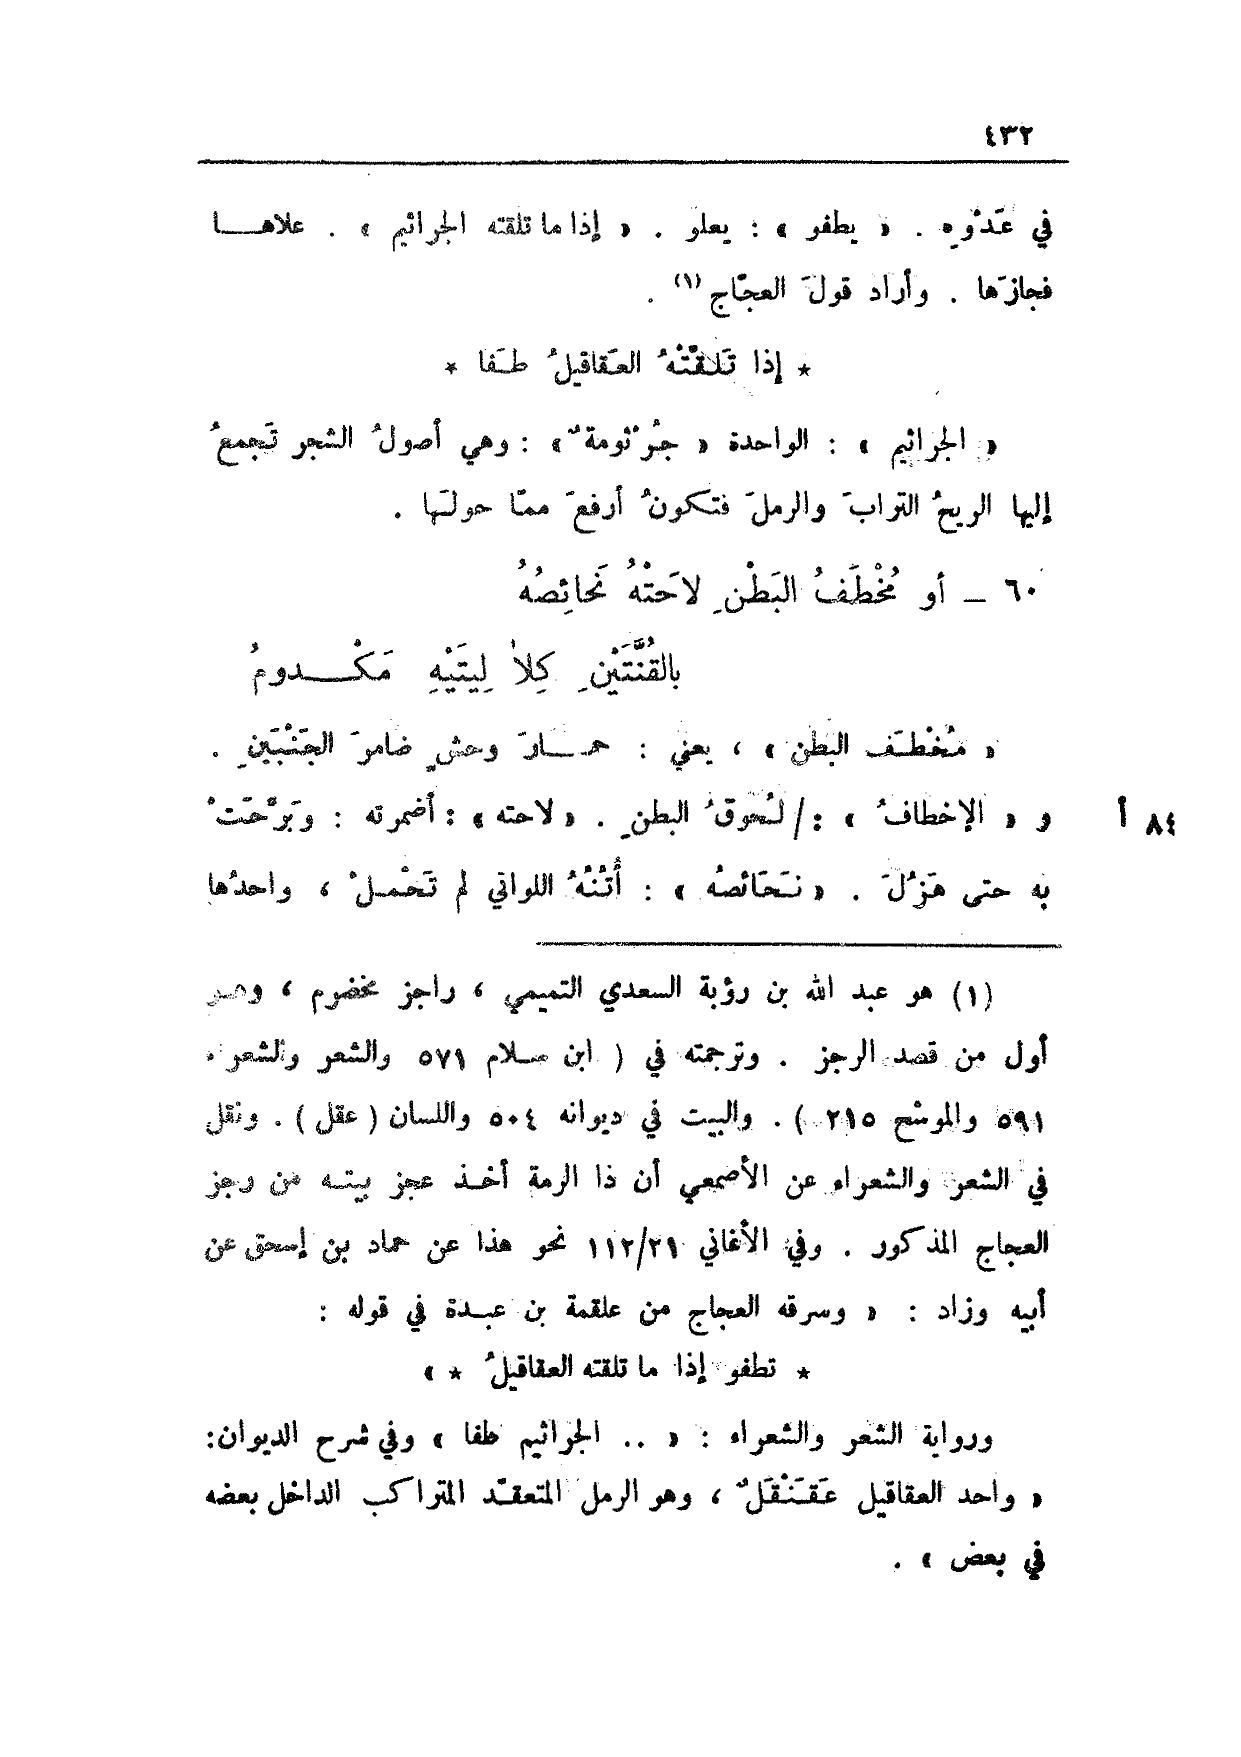 ٤٣٢
في عَدْوِه . « يطفو » : يعلو . « إذا ما تلقته الجراثيم » . علاهـــا
فجازَها . وأراد قولَ العجّاج (١) .
* إذا تَلَقَّتْهُ العَقاقيلُ طَفا *
« الجراثيم » : الواحدة « جُرْثومةٌ » : وهي أصولُ الشجر تَجمعُ
إليها الريحُ الترابَ والرملَ فتكونُ أرفعَ ممّا حولَها .
٦٠ – أو مُخْطَفُ البَطْنِ لاحَتْهُ نَحائِصُهُ
بالقُنَّتَيْنِ كِلاٰ لِيتَيْهِ مَكْــــدومُ
« مُخْطَف البطن » ، يعني : حمـــارَ وحشٍ ضامرَ الجَنْبَينِ .
و « الإخطافُ » :/ لُحوقُ البطنِ . « لاحته » : أضمرته : وبَرَّحَتْ
٨٤ أ
به حتى هَزُلَ . « نَحَائصُه » : أُتُنُهُ اللواتي لم تَحْمـلْ ، واحدُها
(١) هو عبد الله بن رؤبة السعدي التميمي ، راجز مخضرم ، وهـو
أول من قصد الرجز . وترجمته في ( ابن سلام ٥٧١ والشعر والشعراء
٥٩١ والموشح ٢١٥ ) . والبيت في ديوانه ٥٠٤ واللسان ( عقل ) . ونقل
في الشعر والشعراء عن الأصمعي أن ذا الرمة أخـذ عجز بيتـه من رجز
العجاج المذكور . وفي الأغاني ١١٢/٢١ نحو هذا عن حماد بن إسحق عن
أبيه وزاد : « وسرقه العجاج من علقمة بن عبـدة في قوله :
* تطفو إذا ما تلقته العقاقيلُ * »
ورواية الشعر والشعراء : « .. الجراثيم طفا » وفي شرح الديوان:
« واحد العقاقيل عَقَنْقَلٌ ، وهو الرمل المتعقـّد المتراكب الداخل بعضه
في بعض » .